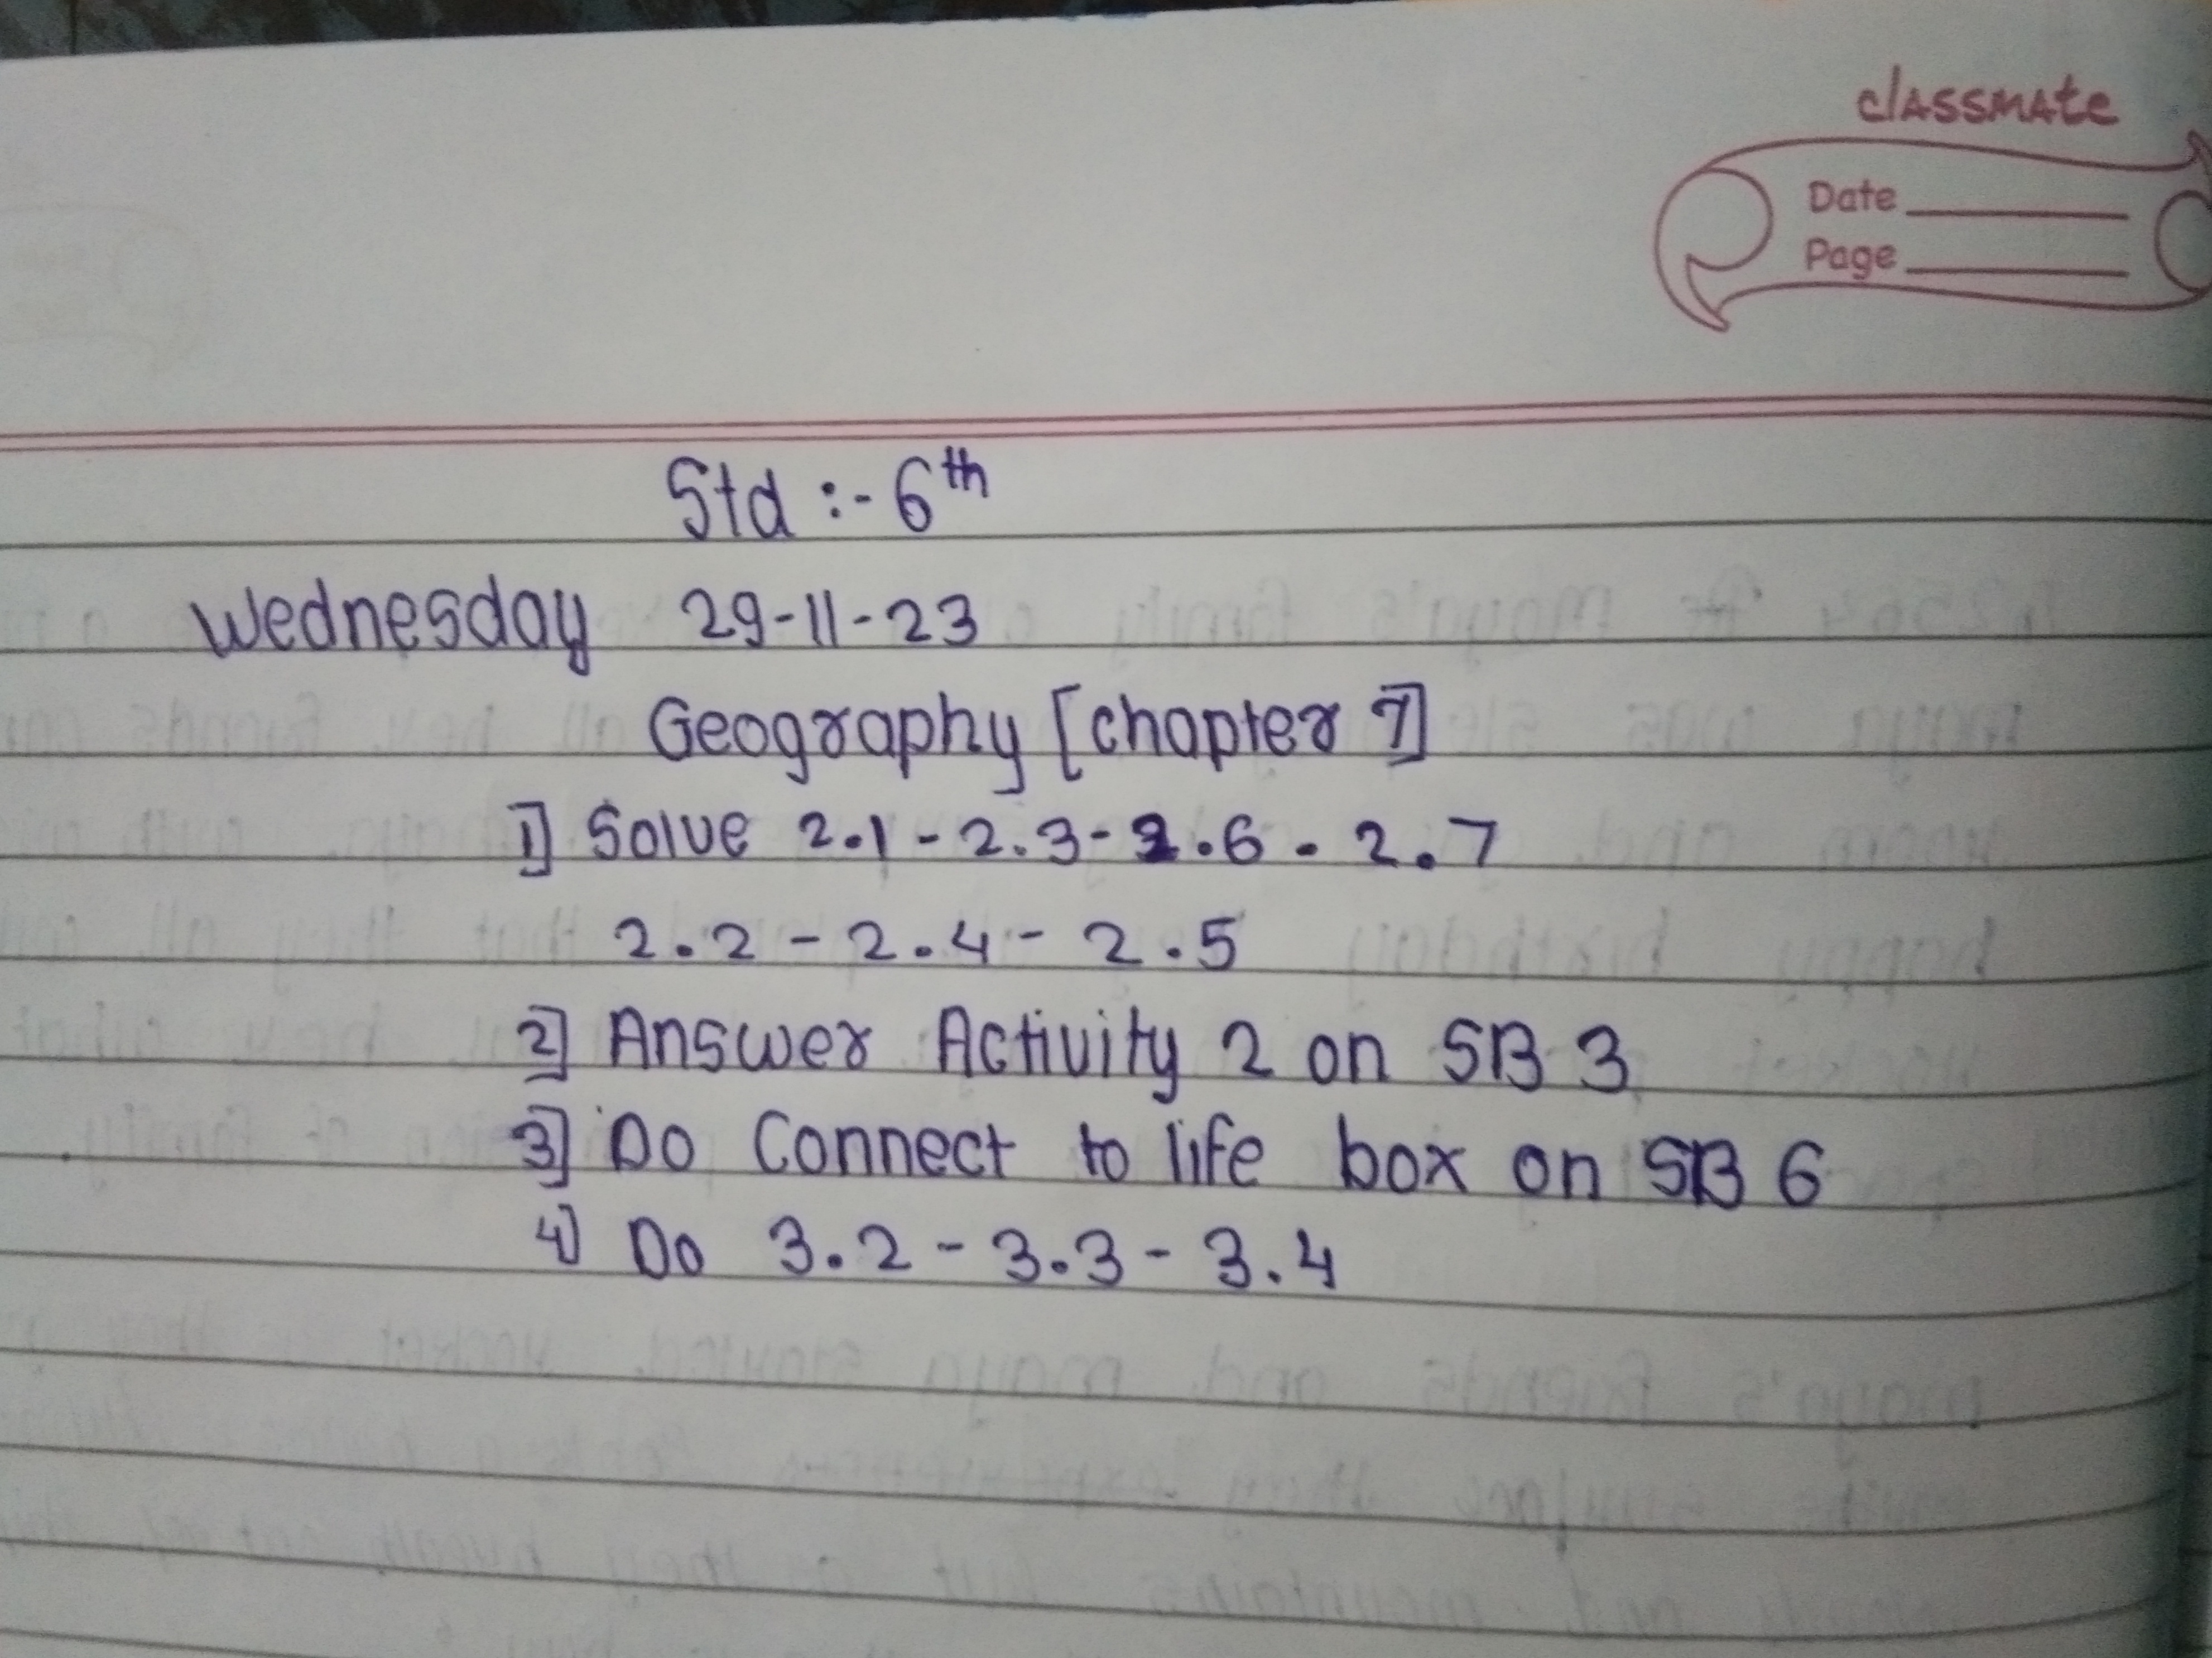 classmate
Date
Page
Std :- 6th
Wednesday 29-11-23
Geography [chapter 7]
1] Solve 2.1 - 2.3 - 2.6 - 2.7
2.2 - 2.4 - 2.5
2] Answer Activity 2 on SB 3
3] Do Connect to life box on SB 6
4) Do 3.2 - 3.3 - 3.4